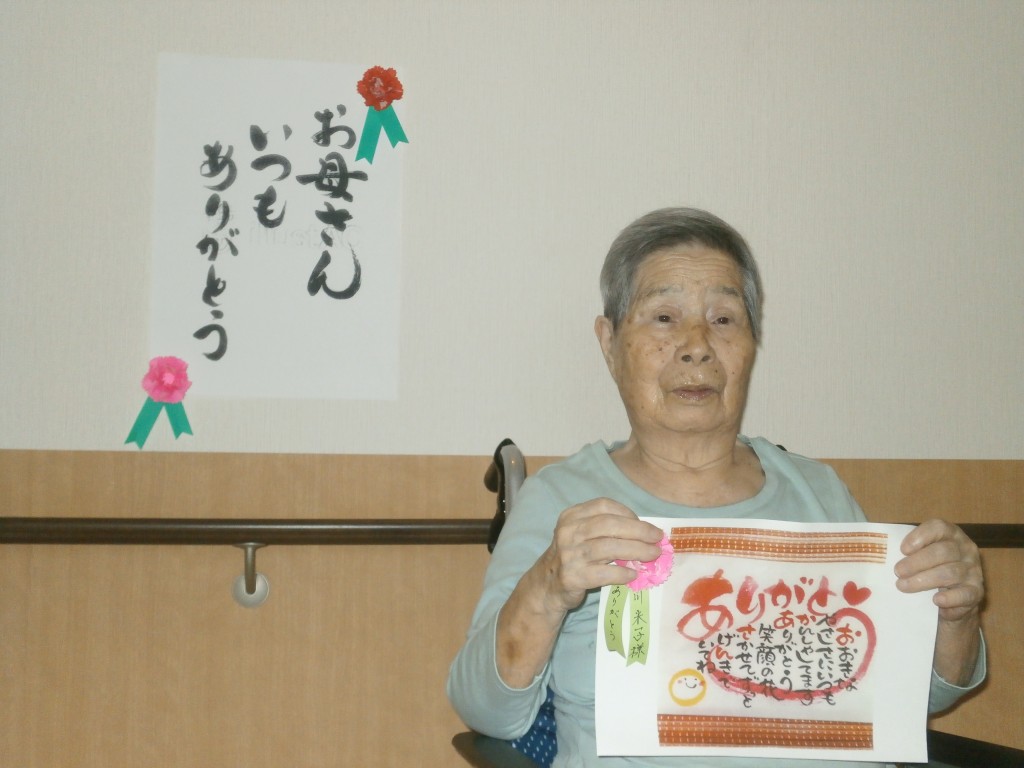 お母さん
いつも
ありがとう
川 米子様
ありがとう
ありがとう
おおきな
やさしさにいつも
かんしゃしてます
ありがとう
笑顔の花
さかせてずっと
げんきで
いてね